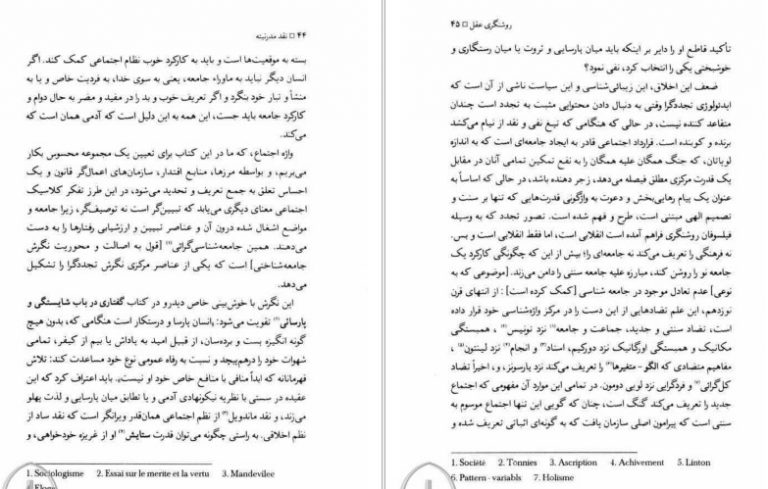 ۴۴ □ نقد مدرنیته
بسته به موقعیت‌ها است و باید به کارکرد خوب نظام اجتماعی کمک کند. اگر
انسان دیگر نباید به ماوراء جامعه، یعنی به سوی خدا، به فردیت خاص و یا به
منشأ و تبار خود بنگرد و اگر تعریف خوب و بد را در مفید و مضر به حال دوام و
کارکرد جامعه باید جست، این همه به این دلیل است که آدمی همان است که
می‌کند.
واژه اجتماع، که ما در این کتاب برای تعیین یک مجموعه محسوس بکار
می‌بریم، و بواسطه مرزها، منابع اقتدار، سازمان‌های اعمال‌گر قانون و یک
احساس تعلق به جمع تعریف و تحدید می‌شود، در این طرز تفکر کلاسیک
اجتماعی معنای دیگری می‌یابد که تبیین‌گر است نه توصیف‌گر، زیرا جامعه و
مواضع اشغال شده درون آن و عناصر تبیین و ارزشیابی رفتارها را به دست
می‌دهند. همین جامعه‌شناسی‌گرائی⁽¹⁾ [قول به اصالت و محوریت نگرش
جامعه‌شناختی] است که یکی از عناصر مرکزی نگرش تجددگرا را تشکیل
می‌دهد.
این نگرش با خوش‌بینی خاص دیدرو در کتاب گفتاری در باب شایستگی و
پارسائی⁽²⁾ تقویت می‌شود: «انسان پارسا و درستکار است هنگامی که، بدون هیچ
گونه انگیزه پست و برده‌سان، از قبیل امید به پاداش یا بیم از کیفر، تمامی
شهوات خود را درهم‌پیچد و نسبت به رفاه عمومی نوع خود مساعدت کند: تلاش
قهرمانانه که ابداً منافی با منافع خاص خود او نیست». باید اعتراف کرد که این
عقیده در سستی با نظریه نیکونهادی آدمی و یا تطابق میان پارسایی و لذت پهلو
می‌زند، و نقد ماندویل⁽³⁾ از نظم اجتماعی همان‌قدر ویرانگر است که نقد ساد از
نظم اخلاقی. به راستی چگونه می‌توان قدرت ستایش⁽⁴⁾ او از غریزه خودخواهی، و
1. Sociologisme 2. Essai sur le merite et la vertu 3. Mandevilee
4. Eloge
روشنگری عقل □ ۴۵
تأکید قاطع او را دایر بر اینکه باید میان پارسایی و ثروت یا میان رستگاری و
خوشبختی یکی را انتخاب کرد، نفی نمود؟
ضعف این اخلاق، این زیبائی‌شناسی و این سیاست ناشی از آن است که
ایدئولوژی تجددگرا وقتی به دنبال دادن محتوایی مثبت به تجدد است چندان
متقاعد کننده نیست، در حالی که هنگامی که تیغ نفی و نقد از نیام می‌کشد
برنده و کوبنده است. قرارداد اجتماعی قادر به ایجاد جامعه‌ای است که به اندازه
لویاتان، که جنگ همگان علیه همگان را به نفع تمکین تمامی آنان در مقابل
یک قدرت مرکزی مطلق فیصله می‌دهد، زجر دهنده باشد، در حالی که اساساً به
عنوان یک پیام رهایی‌بخش و دعوت به واژگونی قدرت‌هایی که تنها بر سنت و
تصمیم الهی مبتنی است، طرح و فهم شده است. تصور تجدد که به وسیله
فیلسوفان روشنگری فراهم آمده است انقلابی است، اما فقط انقلابی است و بس.
نه فرهنگی را تعریف می‌کند نه جامعه‌ای را؛ بیش از این که چگونگی کارکرد یک
جامعه نو را روشن کند، مبارزه علیه جامعه سنتی را دامن می‌زند. [موضوعی که به
نوعی] عدم تعادل موجود در جامعه شناسی [کمک کرده است]: از انتهای قرن
نوزدهم، این علم تضادهایی از این دست را در مرکز واژه‌شناسی خود قرار داده
است، تضاد سنتی و جدید، جماعت و جامعه⁽¹⁾ نزد تونیس⁽²⁾، همبستگی
مکانیک و همبستگی اورگانیک نزد دورکیم، اسناد⁽³⁾ و انجام⁽⁴⁾ نزد لینتون⁽⁵⁾،
مفاهیم متضادی که الگو - متغیرها⁽⁶⁾ را تعریف می‌کند نزد پارسونز، و، اخیراً تضاد
کل‌گرائی⁽⁷⁾ و فردگرایی نزد لویی دومون. در تمامی این موارد آن مفهومی که اجتماع
جدید را تعریف می‌کند گنگ است، چنان که گویی این تنها اجتماع موسوم به
سنتی است که پیرامون اصلی سازمان یافت که به گونه‌ای اثباتی تعریف شده و
1. Société 2. Tonnies 3. Ascription 4. Achivement 5. Linton
6. Pattern - variabls 7. Holisme